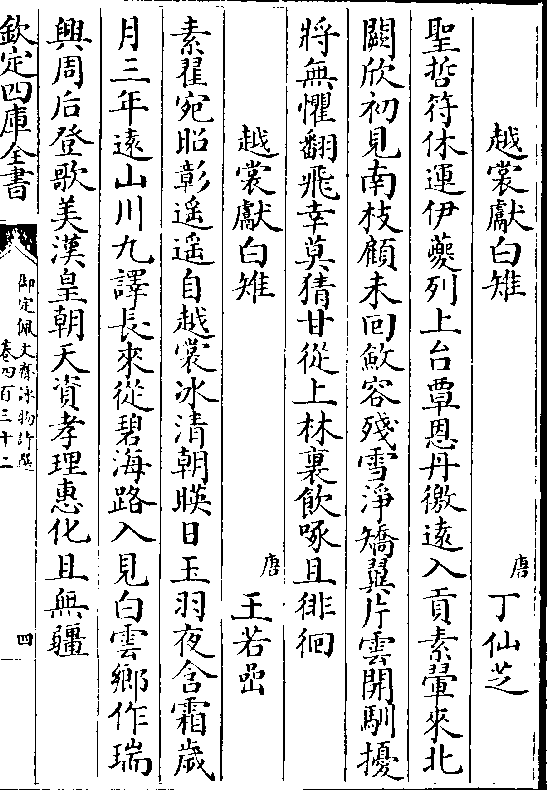 越裳獻白雉　唐　丁仙芝
聖哲符休運伊夔列上台覃恩丹徼遠入貢素翬來北
闕欣初見南枝顧未回斂容殘雪淨矯翼片雲開馴擾
將無懼翻飛幸莫猜甘從上林裏飲啄且徘徊
越裳獻白雉　唐　王若嵒
素翟宛昭彰遥遥自越裳冰清朝暎日玉羽夜含霜歲
月三年遠山川九譯長來從碧海路入見白雲鄉作瑞
興周后登歌美漢皇朝天資孝理惠化且無疆
欽定四庫全書
御定佩文齋詠物詩選
卷四百三十二
四